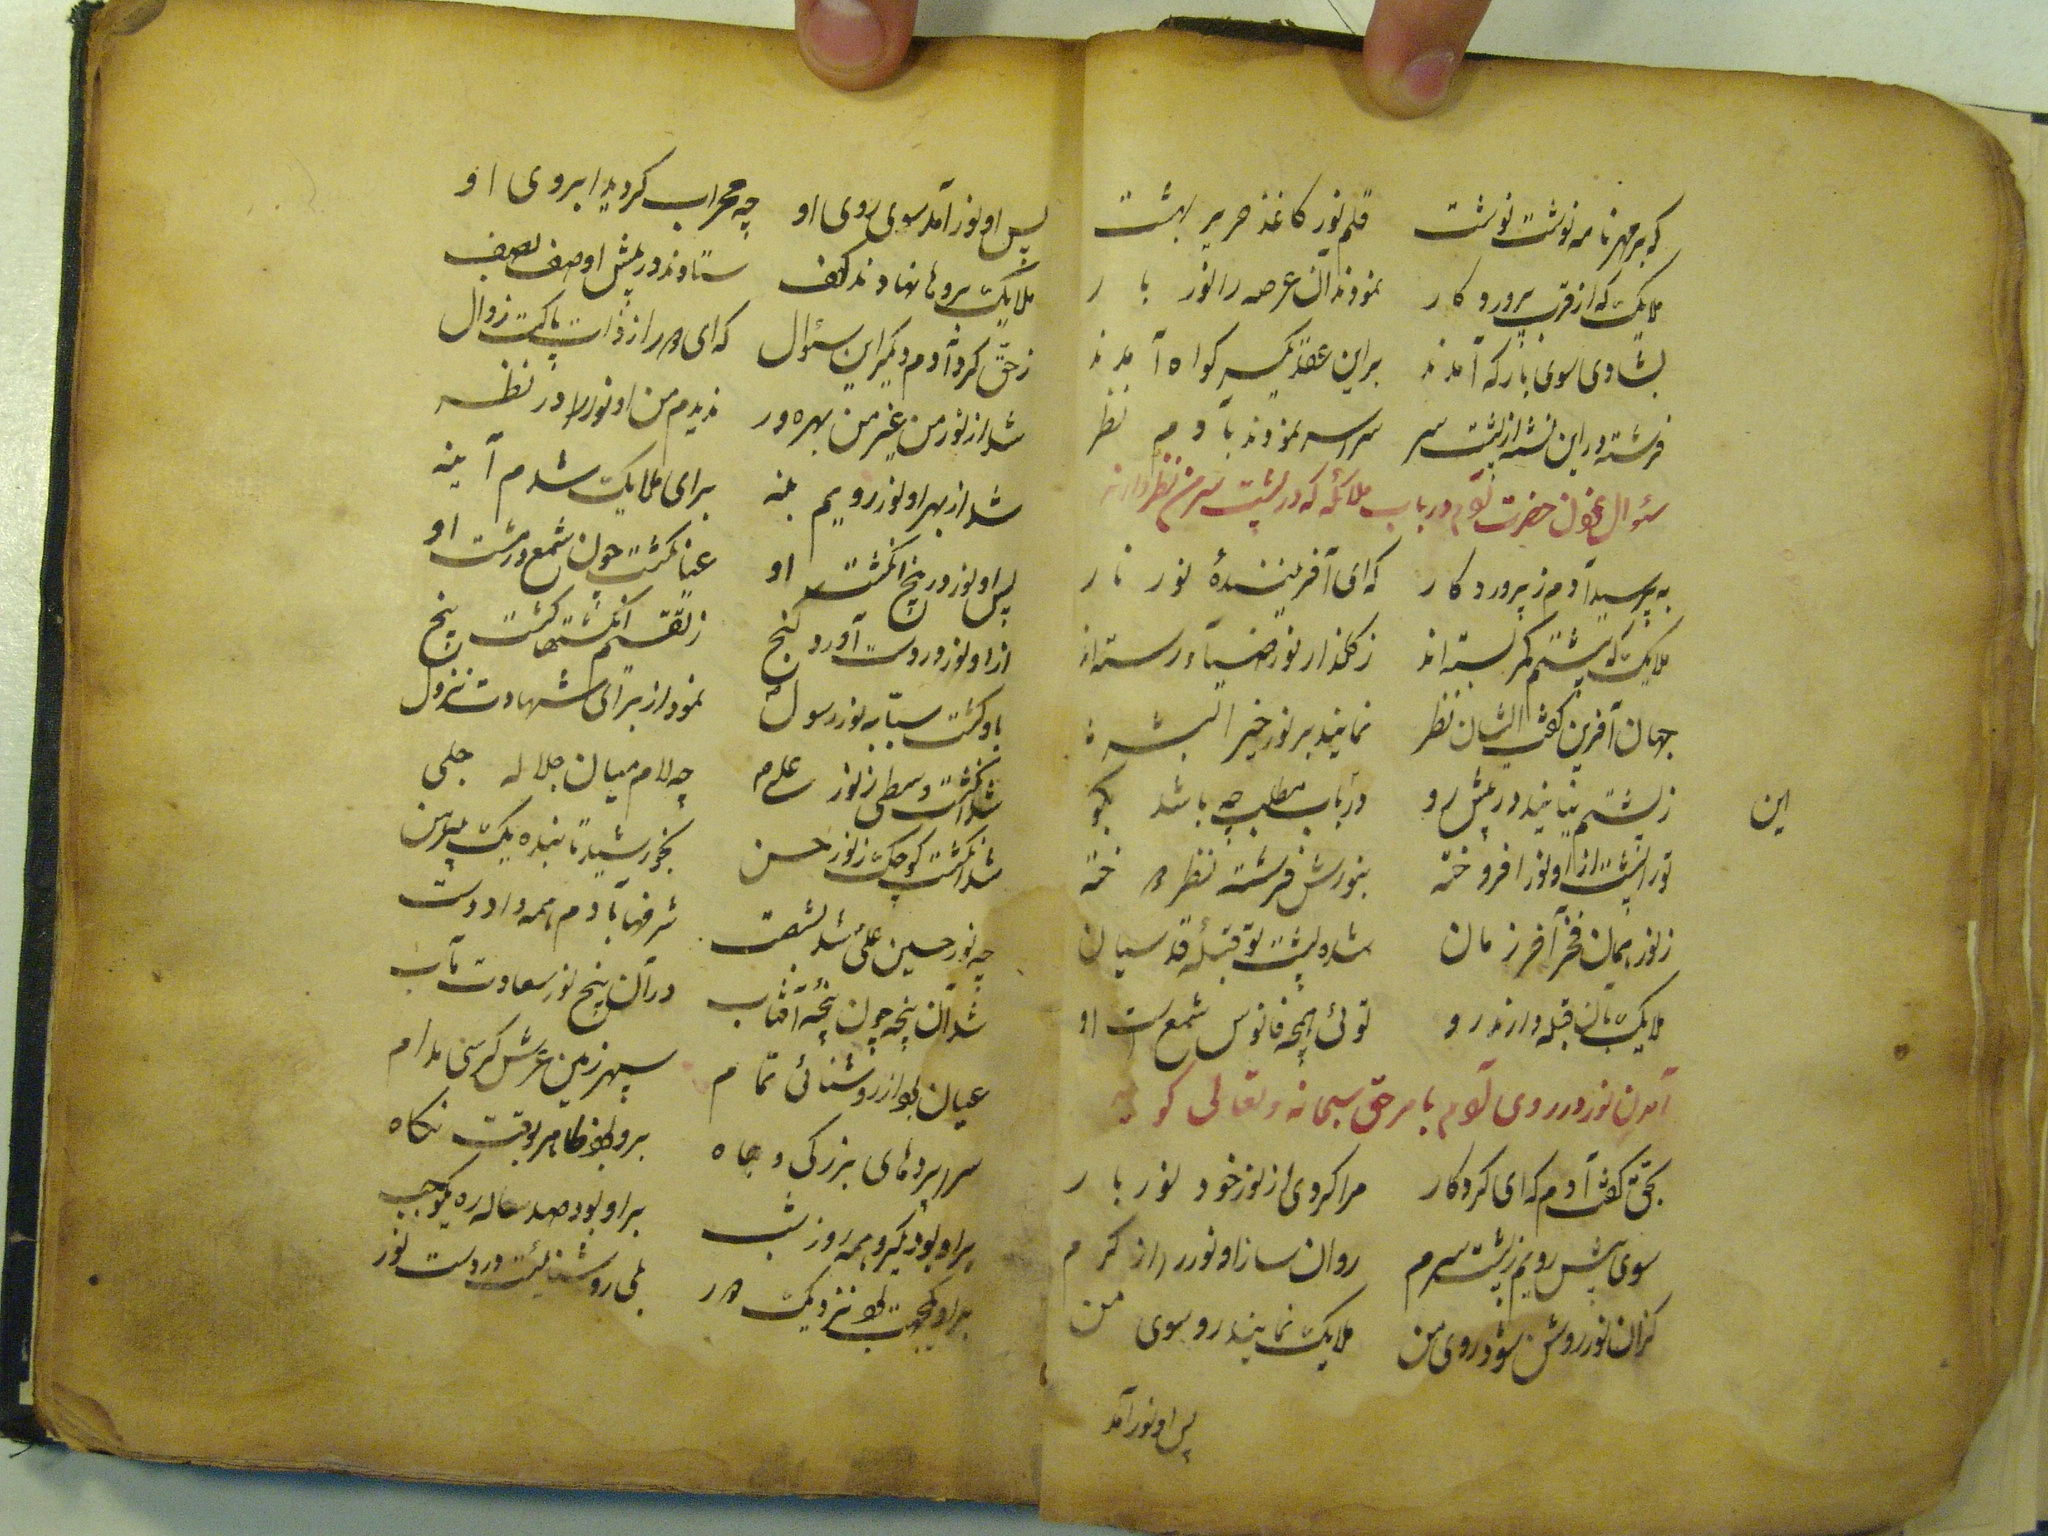 که بر مهر نامه نوشت نوشت قلم نور کاغذ حریر بهشت
ملایک که از قرب پروردکار نمودند آن عرصه را نور بار
بشادی سوی بارکه آمدند براین عقد یکسر کواه آمدند
فرشته در این نشه از پشت سر سراسر نمودند بآدم نظر
سئوال نمودن حضرت آدم در باب ملائکه که در پشت سر من نظر دارند
به پرسید آدم ز پروردکار که ای آفرینندهٔ نور نار
ملایک که پشتم کمر بسته اند ز کلذار نور ضیا رسته اند
جهان آفرین کفت ایشان نظر نمایند بر نور خیر البشر
ز پشتم نیایند در پیش رو در این باب مطلب چه باشد بکو
تورا پشت از او نور افروخته بنورش فرشته نظر دوخته
ز نور همان فخر آخر زمان شده پشت تو قبلهٔ قدسیان
ملایک بآن قبله دارند رو توئی همچه فانوس شمع است او
آمدن نور در روی آدم بامر حق سبحانه و تعالی کوید
بحق کفت آدم که ای کردکار مرا کردی از نور خود نور بار
سوی پیش رویم ز پشت سرم روان ساز او نور را از کرم
کزان نور روشن شود روی من ملایک نمایند رو سوی من
پس او نور آمد
این
پس او نور آمد سوی روی او چه محراب کردید ابروی او
ملایک بروها نهادند کف ستادند در پیش او صف بصف
ز حق کرد آدم دیگر این سئوال که ای دور از ذات پاکت زوال
شد از نور من غیر من بهره ور ندیدم من او نور را در نظر
شد از بهر او نور رویم بنه برای ملایک شدم آینه
پس او نور در پنج انکشت او عیان کشت چون شمع در مشت او
از او نور در دست آورد کنج ز تقسیم انکشتها کشت پنج
باو کشت سبابه نور رسول نمود از برای شهادت نزول
شد انکشت وسطی ز نور علی م چه لام میان جلاله جلی
شد انکشت کوچک ز نور حسن بخورشید تابنده یک پیرهن
چه نور حسین علی شد بشصت شرفها بآدم همه داد دست
شد آن پنجه چون پنجهٔ آفتاب در آن پنج نور سعادت مآب
عیان بود از روشنائی تمام سپهر زمین عرش کرسی مدام
سراپردهای بزرکی و جاه برو بود ظاهر بوقت نکاه
براو بود یکرو همه روز شب براو بود صد ساله ره یکوجب
براو یکجهت بود نزدیک دور بلی روشنائیست در دست نور